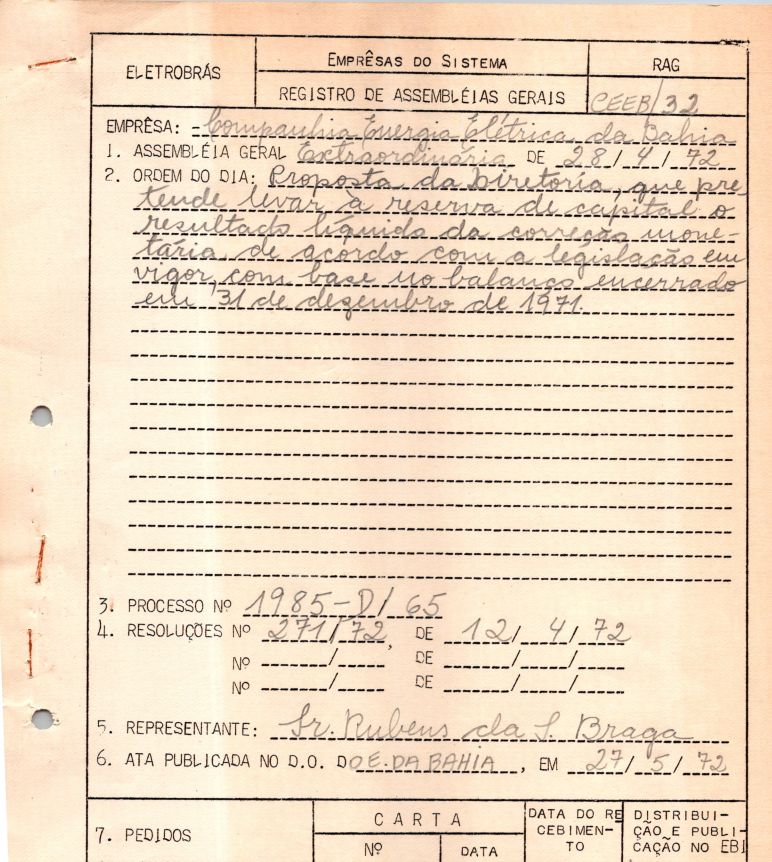 ELETROBRÁS
EMPRÊSAS DO SISTEMA
RAG
REGISTRO DE ASSEMBLÉIAS GERAIS
CEEB/32
EMPRÊSA: Companhia Energia Elétrica da Bahia
1. ASSEMBLÉIA GERAL Extraordinária DE 28/4/72
2. ORDEM DO DIA: Proposta da Diretoria, que pre
tende levar à reserva de capital o
resultado líquido da correção mone-
tária de acordo com a legislação em
vigor, com base no balanço encerrado
em 31 de dezembro de 1971.
3. PROCESSO Nº 1985-D/65
4. RESOLUÇÕES Nº 271/72, DE 12/4/72
Nº / DE / /
Nº / DE / /
5. REPRESENTANTE: Sr. Rubens da S. Braga
6. ATA PUBLICADA NO D.O. DO E. DA BAHIA, EM 27/5/72
7. PEDIDOS
CARTA
Nº
DATA
DATA DO RE
CEBIMEN-
TO
DISTRIBUI-
ÇÃO E PUBLI-
CAÇÃO NO EBI